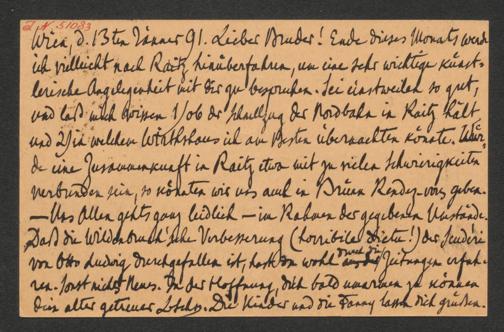 I. N. 51083
Wien, d. 13ten Jänner 91. Lieber Bruder! Ende dieses Monats werd
ich vielleicht nach Raitz hinüberfahren, um eine sehr wichtige künst-
lerische Angelegenheit mit dir zu besprechen. Sei einstweilen so gut,
und laß mich wissen 1/ ob der Schnellzug der Nordbahn in Raitz hält
und 2/ in welchem Wirthshaus ich am Besten übernachten könnte. Wür-
de eine Zusammenkunft in Raitz etwa mit zu vielen Schwierigkeiten
verbunden sein, so könnten wir uns auch in Brünn Rendez-vous geben.
— Uns Allen gehts ganz leidlich — im Rahmen der gegebenen Umstände.
Daß die Wildenbruch'sche Verbesserung (horribile dictu!) der Scudéri
von Otto Ludwig durchgefallen ist, hast du wohl durch die Zeitungen erfah-
ren. Sonst nichts Neues. In der Hoffnung, dich bald umarmen zu können
dein alter getreuer Josef. Die Kinder und die Fanny lassen dich grüßen.